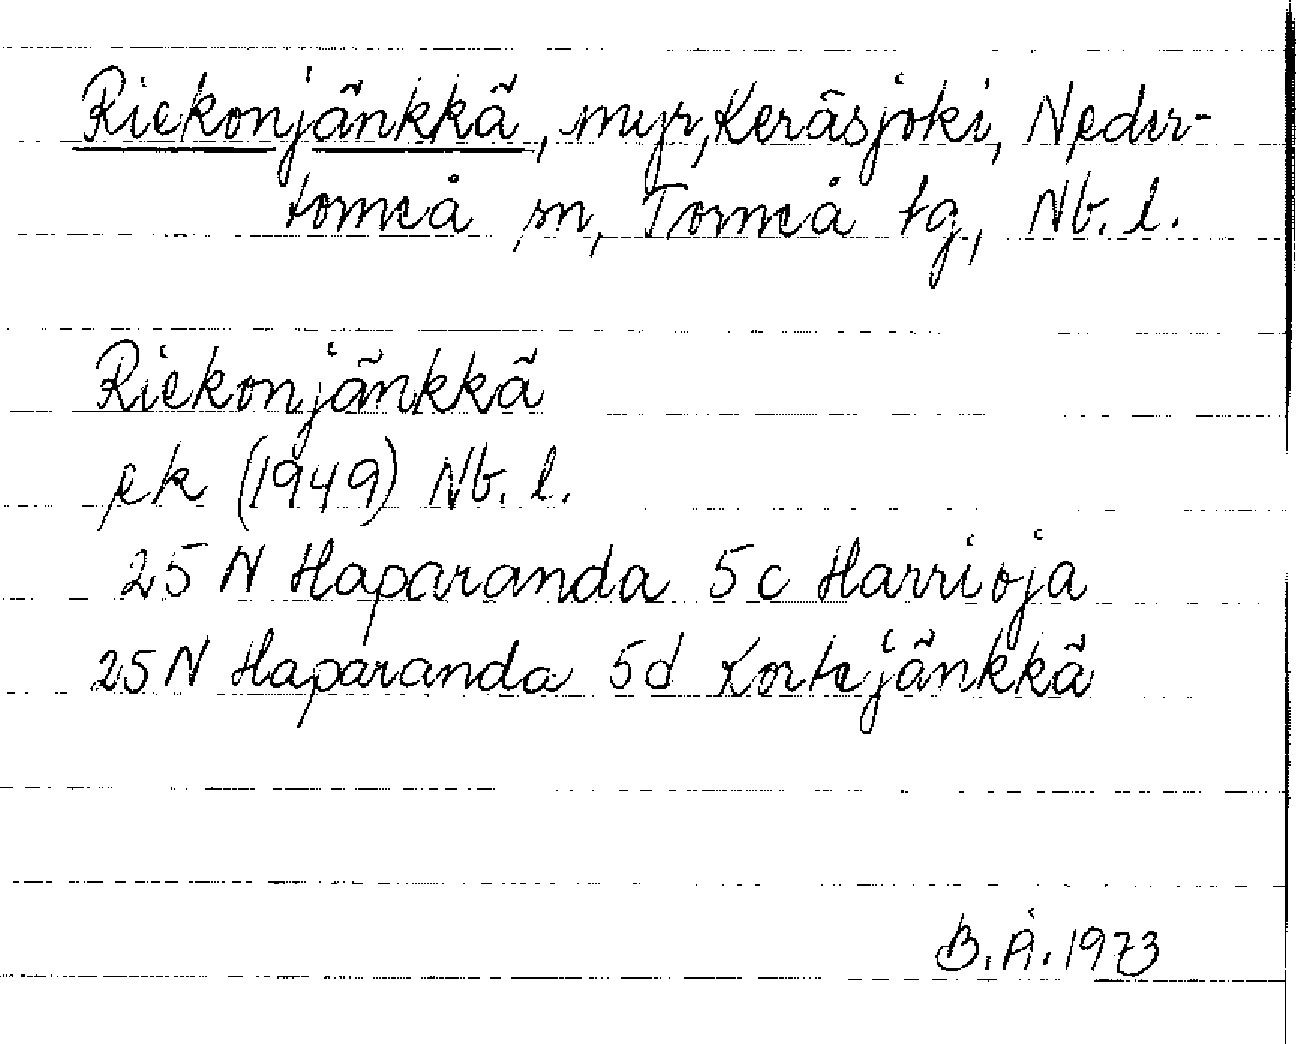 Riekonjänkkä, myr, Keräsjoki, Neder-
torneå sn, Torneå tg, Nb. l.
Riekonjänkkä
ek (1949) Nb. l.
25 N Haparanda 5c Harrioja
25 N Haparanda 5d Kortejänkkä
B.Å. 1973